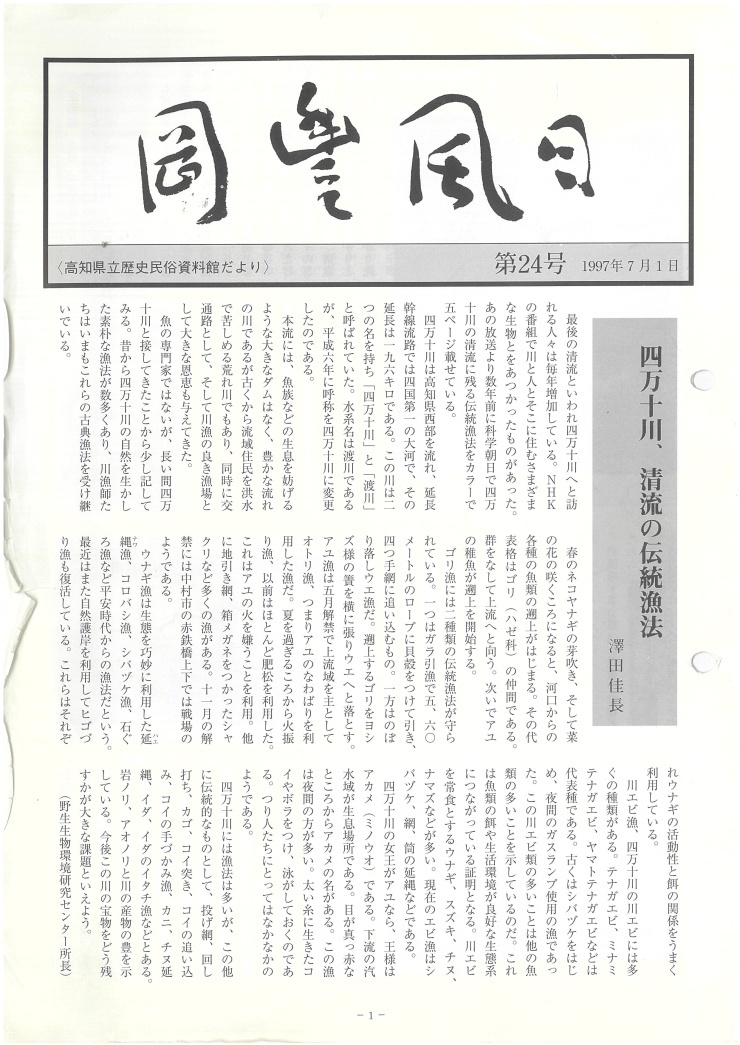 岡豊風日
〈高知県立歴史民俗資料館だより〉
第24号 1997年7月1日
四万十川、清流の伝統漁法
澤田佳長
最後の清流といわれ四万十川へと訪
れる人々は毎年増加している。NHK
の番組で川と人とそこに住むさまざま
な生物とをあつかったものがあった。
あの放送より数年前に科学朝日で四万
十川の清流に残る伝統漁法をカラーで
五ページ載せている。
四万十川は高知県西部を流れ、延長
幹線流路では四国第一の大河で、その
延長は一九六キロである。この川は二
つの名を持ち「四万十川」と「渡川」
と呼ばれていた。水系名は渡川である
が、平成六年に呼称を四万十川に変更
したのである。
本流には、魚族などの生息を妨げる
ような大きなダムはなく、豊かな流れ
の川であるが古くから流域住民を洪水
で苦しめる荒れ川でもあり、同時に交
通路として、そして川漁の良き漁場と
して大きな恩恵も与えてきた。
魚の専門家ではないが、長い間四万
十川と接してきたことから少し記して
みる。昔から四万十川の自然を生かし
た素朴な漁法が数多くあり、川漁師た
ちはいまもこれらの古典漁法を受け継
いでいる。
春のネコヤナギの芽吹き、そして菜
の花の咲くころになると、河口からの
各種の魚類の遡上がはじまる。その代
表格はゴリ(ハゼ科)の仲間である。
群をなして上流へと向う。次いでアユ
の稚魚が遡上を開始する。
ゴリ漁には二種類の伝統漁法が守ら
れている。一つはガラ引漁で五、六〇
メートルのロープに貝殻をつけて引き、
四つ手網に追い込むもの。一方はのぼ
り落しウエ漁だ。遡上するゴリをヨシ
ズ様の簀を横に張りウエへと落とす。
アユ漁は五月解禁で上流域を主として
オトリ漁、つまりアユのなわばりを利
用した漁だ。夏を過ぎるころから火振
り漁、以前はほとんど肥松を利用した。
これはアユの火を嫌うことを利用。他
に地引き網、箱メガネをつかったシャ
クリなど多くの漁がある。十一月の解
禁には中村市の赤鉄橋上下では戦場の
ようである。
ウナギ漁は生態を巧妙に利用した延
ハエ
縄漁、コロバシ漁、シバヅケ漁、石ぐ
ナワ
ろ漁など平安時代からの漁法だという。
最近はまた自然護岸を利用してヒゴヅ
り漁も復活している。これらはそれぞ
れウナギの活動性と餌の関係をうまく
利用している。
川エビ漁、四万十川の川エビには多
くの種類がある。テナガエビ、ミナミ
テナガエビ、ヤマトテナガエビなどは
代表種である。古くはシバヅケをはじ
め、夜間のガスランプ使用の漁であっ
た。この川エビ類の多いことは他の魚
類の多いことを示しているのだ。これ
は魚類の餌や生活環境が良好な生態系
につながっている証明となる。川エビ
を常食とするウナギ、スズキ、チヌ、
ナマズなどが多い。現在のエビ漁はシ
バヅケ、網、筒の延縄などである。
四万十川の女王がアユなら、王様は
アカメ(ミノウオ)である。下流の汽
水域が生息場所である。目が真っ赤な
ところからアカメの名がある。この漁
は夜間の方が多い。太い糸に生きたコ
イやボラをつけ、泳がしておくのであ
る。つり人たちにとってはなかなかの
ようである。
四万十川には漁法は多いが、この他
に伝統的なものとして、投げ網、回し
打ち、カゴ、コイ突き、コイの追い込
み、コイの手づかみ漁、カニ、チヌ延
縄、イダ、イダのイタチ漁などとある。
岩ノリ、アオノリと川の産物の豊を示
している。今後この川の宝物をどう残
すかが大きな課題といえよう。
(野生生物環境研究センター所長)
－1－